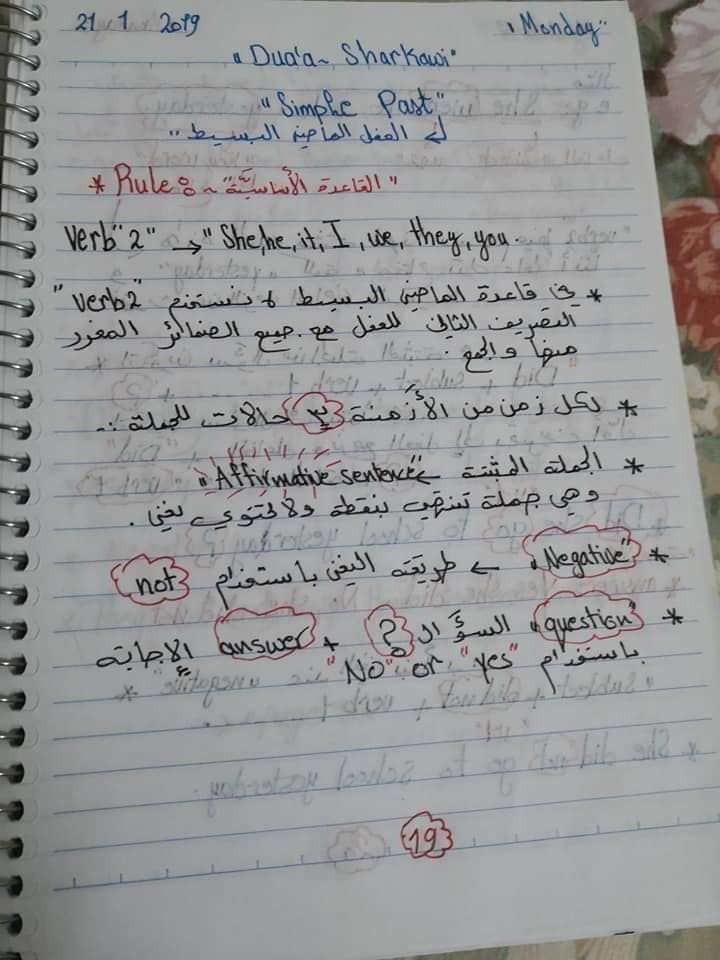 21 1 2019 "Monday"
"Dua'a ~ Sharkawi"
"Simple Past"
الفعل الماضي البسيط"
* Rule: ~ "القاعدة الأساسيَّة"
Verb "2" → "She, he, it, I, we, they, you.
* في قاعدة الماضي البسيط نستخدم "verb 2"
التصريف الثاني للفعل مع جميع الضمائر المفرد
منها والجمع.
* لكل زمن من الأزمنة ٣ حالات للجملة :-
* الجملة المثبتة ← "Affirmative sentence"
وهي جملة تنتهي بنقطة ولا تحتوي نفي.
* "Negative" ← طريقة النفي باستخدام not
* "question" السؤال ? + answer الإجابة
باستخدام "yes" or "No"
19